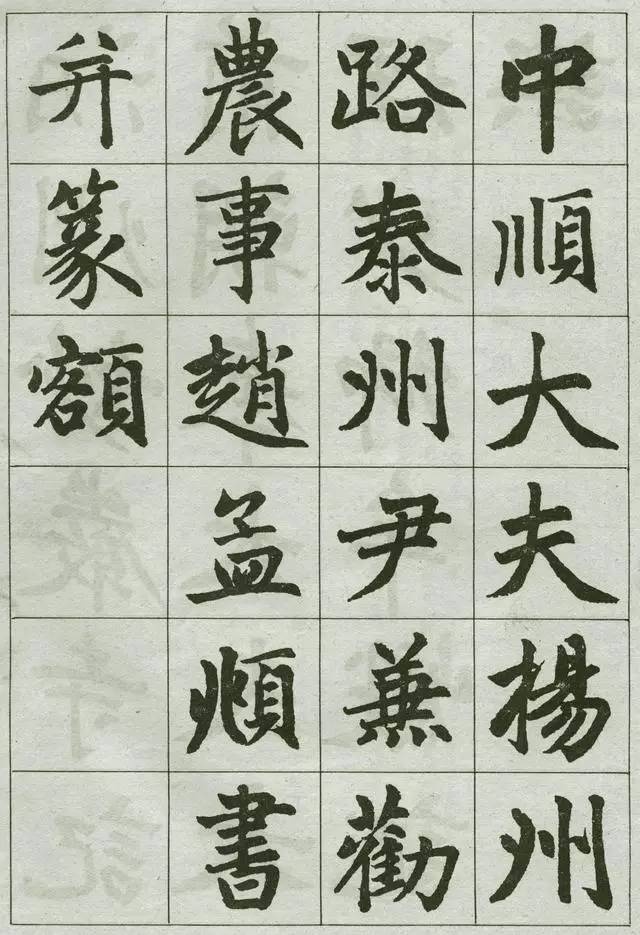 中順大夫楊州
路泰州尹蒹勸
農事趙孟頫書
并篆額